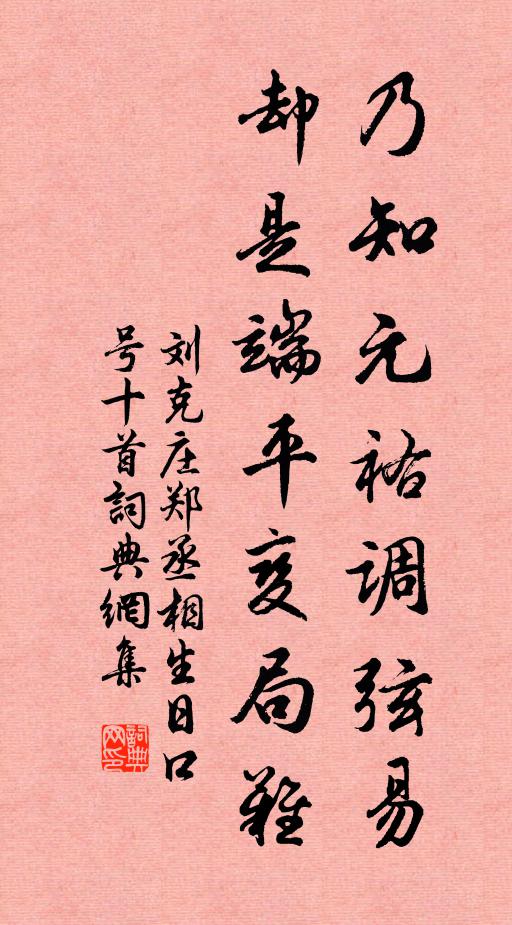 乃知元祐调弦易
却是端平变局难
刘克庄郑丞相生日口
号十首詞典網集
詞典
网印